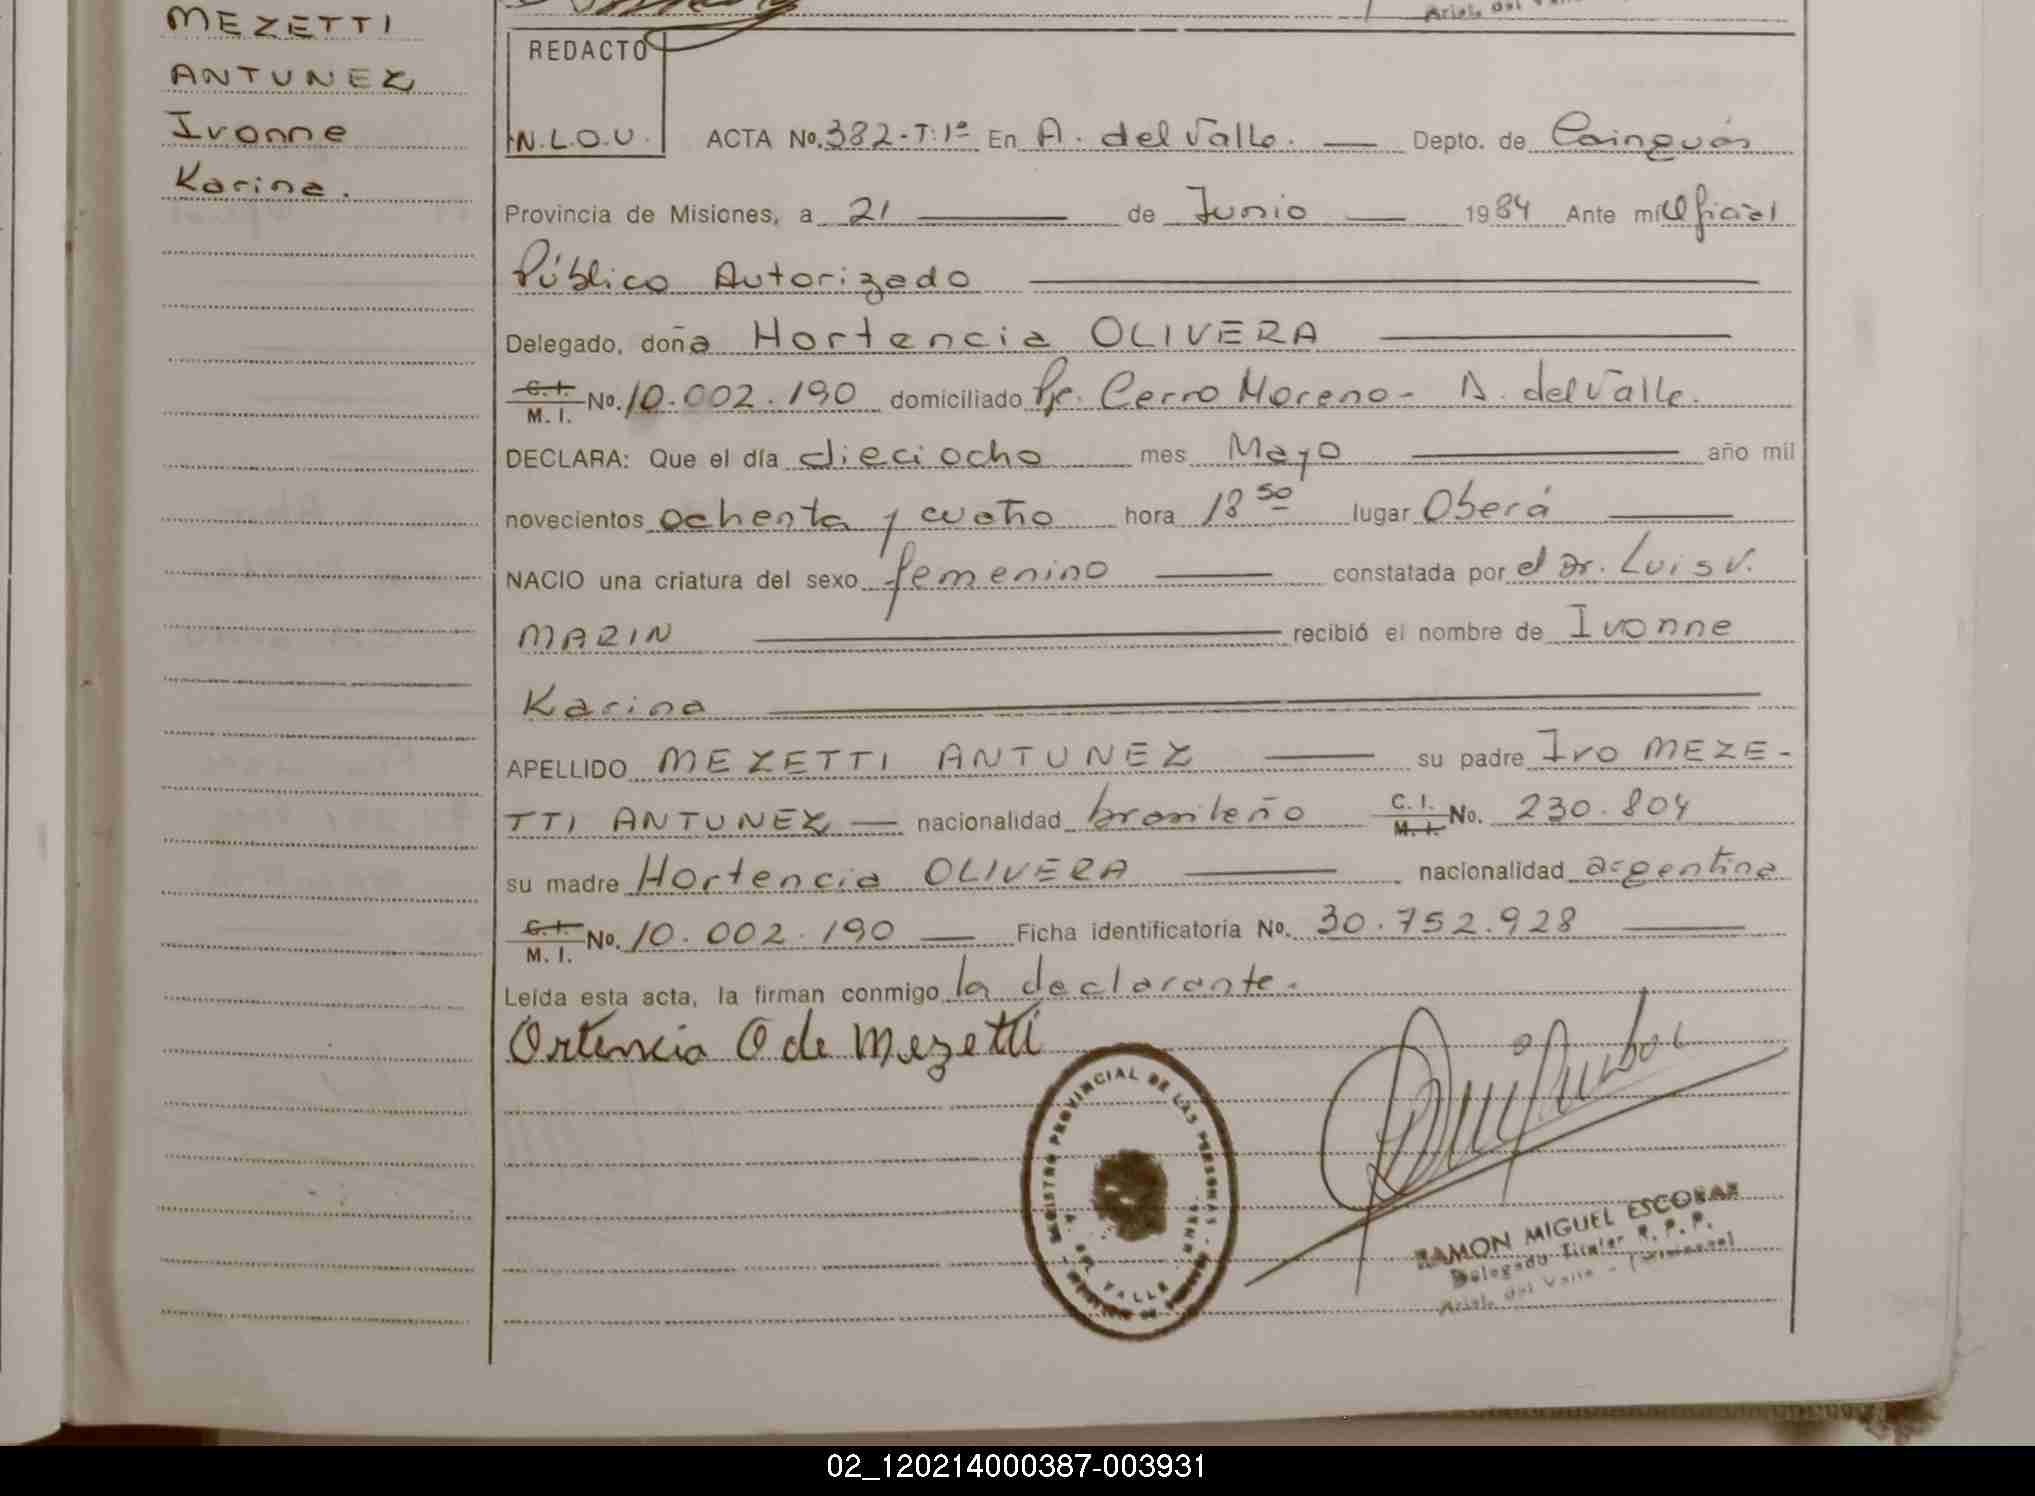 MEZETTI
ANTUNEZ
Ivonne
Karina.
REDACTO
N.L.O.U.
ACTA No. 382-T:1º En A. del Valle. — Depto. de Cainguás
Provincia de Misiones, a 21 — de Junio — 1984 Ante mí Oficial
Público Autorizado
Delegado, doña Hortencia OLIVERA
C.I. M.I. No. 10.002.190 domiciliado Pje. Cerro Moreno - A. del Valle.
DECLARA: Que el día dieciocho mes Mayo — año mil
novecientos ochenta y cuatro hora 18 50 lugar Oberá
NACIO una criatura del sexo femenino — constatada por el Dr. Luis V.
MARIN — recibió el nombre de Ivonne
Karina
APELLIDO MEZETTI ANTUNEZ — su padre Ivo MEZE-
TTI ANTUNEZ — nacionalidad brasileño C.I. M.I. No. 230.804
su madre Hortencia OLIVERA — nacionalidad argentina
C.I. M.I. No. 10.002.190 — Ficha identificatoria No. 30.752.928
Leída esta acta, la firman conmigo la declarante.
Ortencia O de Mezetti
REGISTRO PROVINCIAL DE LAS PERSONAS
DEL VALLE
RAMON MIGUEL ESCOBAR
Delegado Titular R. P. P.
Arist. del Valle - (Misiones)
02_120214000387-003931